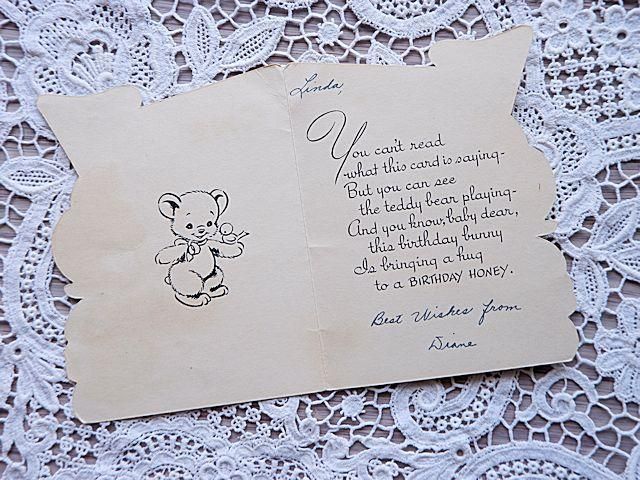 Linda,
You can't read
what this card is saying-
But you can see
the teddy bear playing-
And you know, baby dear,
this birthday bunny
Is bringing a hug
to a BIRTHDAY HONEY.
Best Wishes from
Diane